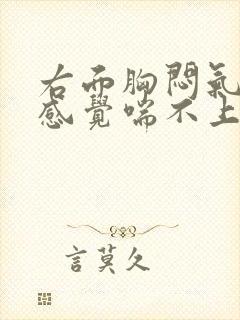 右面胸悶氣
感覺喘不上
言莫久